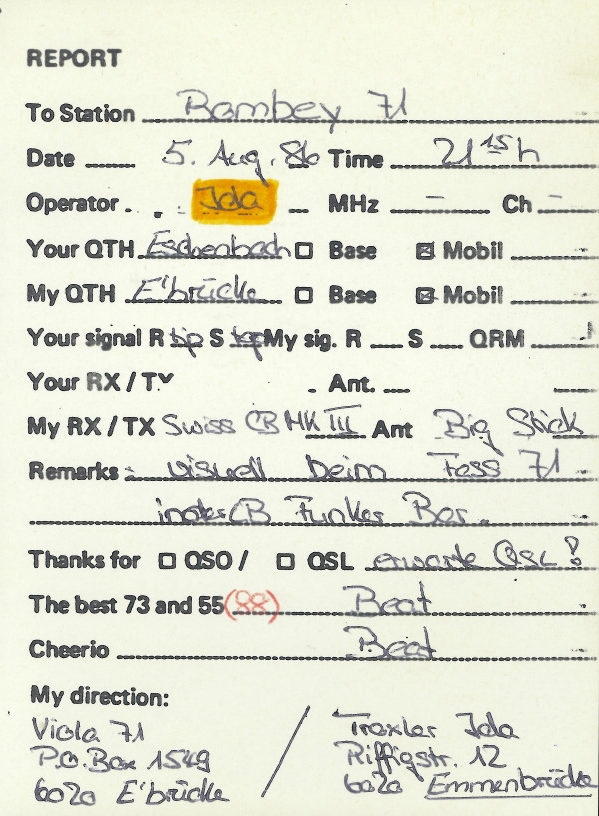 REPORT
To Station Bambey 71
Date 5. Aug. 86 Time 21 15 h
Operator Jda MHz – Ch –
Your QTH Eschenbach ☐ Base ☒ Mobil
My QTH E'brücke ☐ Base ☒ Mobil
Your signal R top S top My sig. R S QRM
Your RX / TX Ant.
My RX / TX Swiss CB MK III Ant Big Stick
Remarks: visuell beim Fass 71
in der CB Funker Bar.
Thanks for ☐ QSO / ☐ QSL erwarte QSL!
The best 73 and 55 (88) Beat
Cheerio Beat
My direction:
Viola 71 / Troxler Jda
P.O. Box 1549 Riffigstr. 12
6020 E'brücke 6020 Emmenbrücke